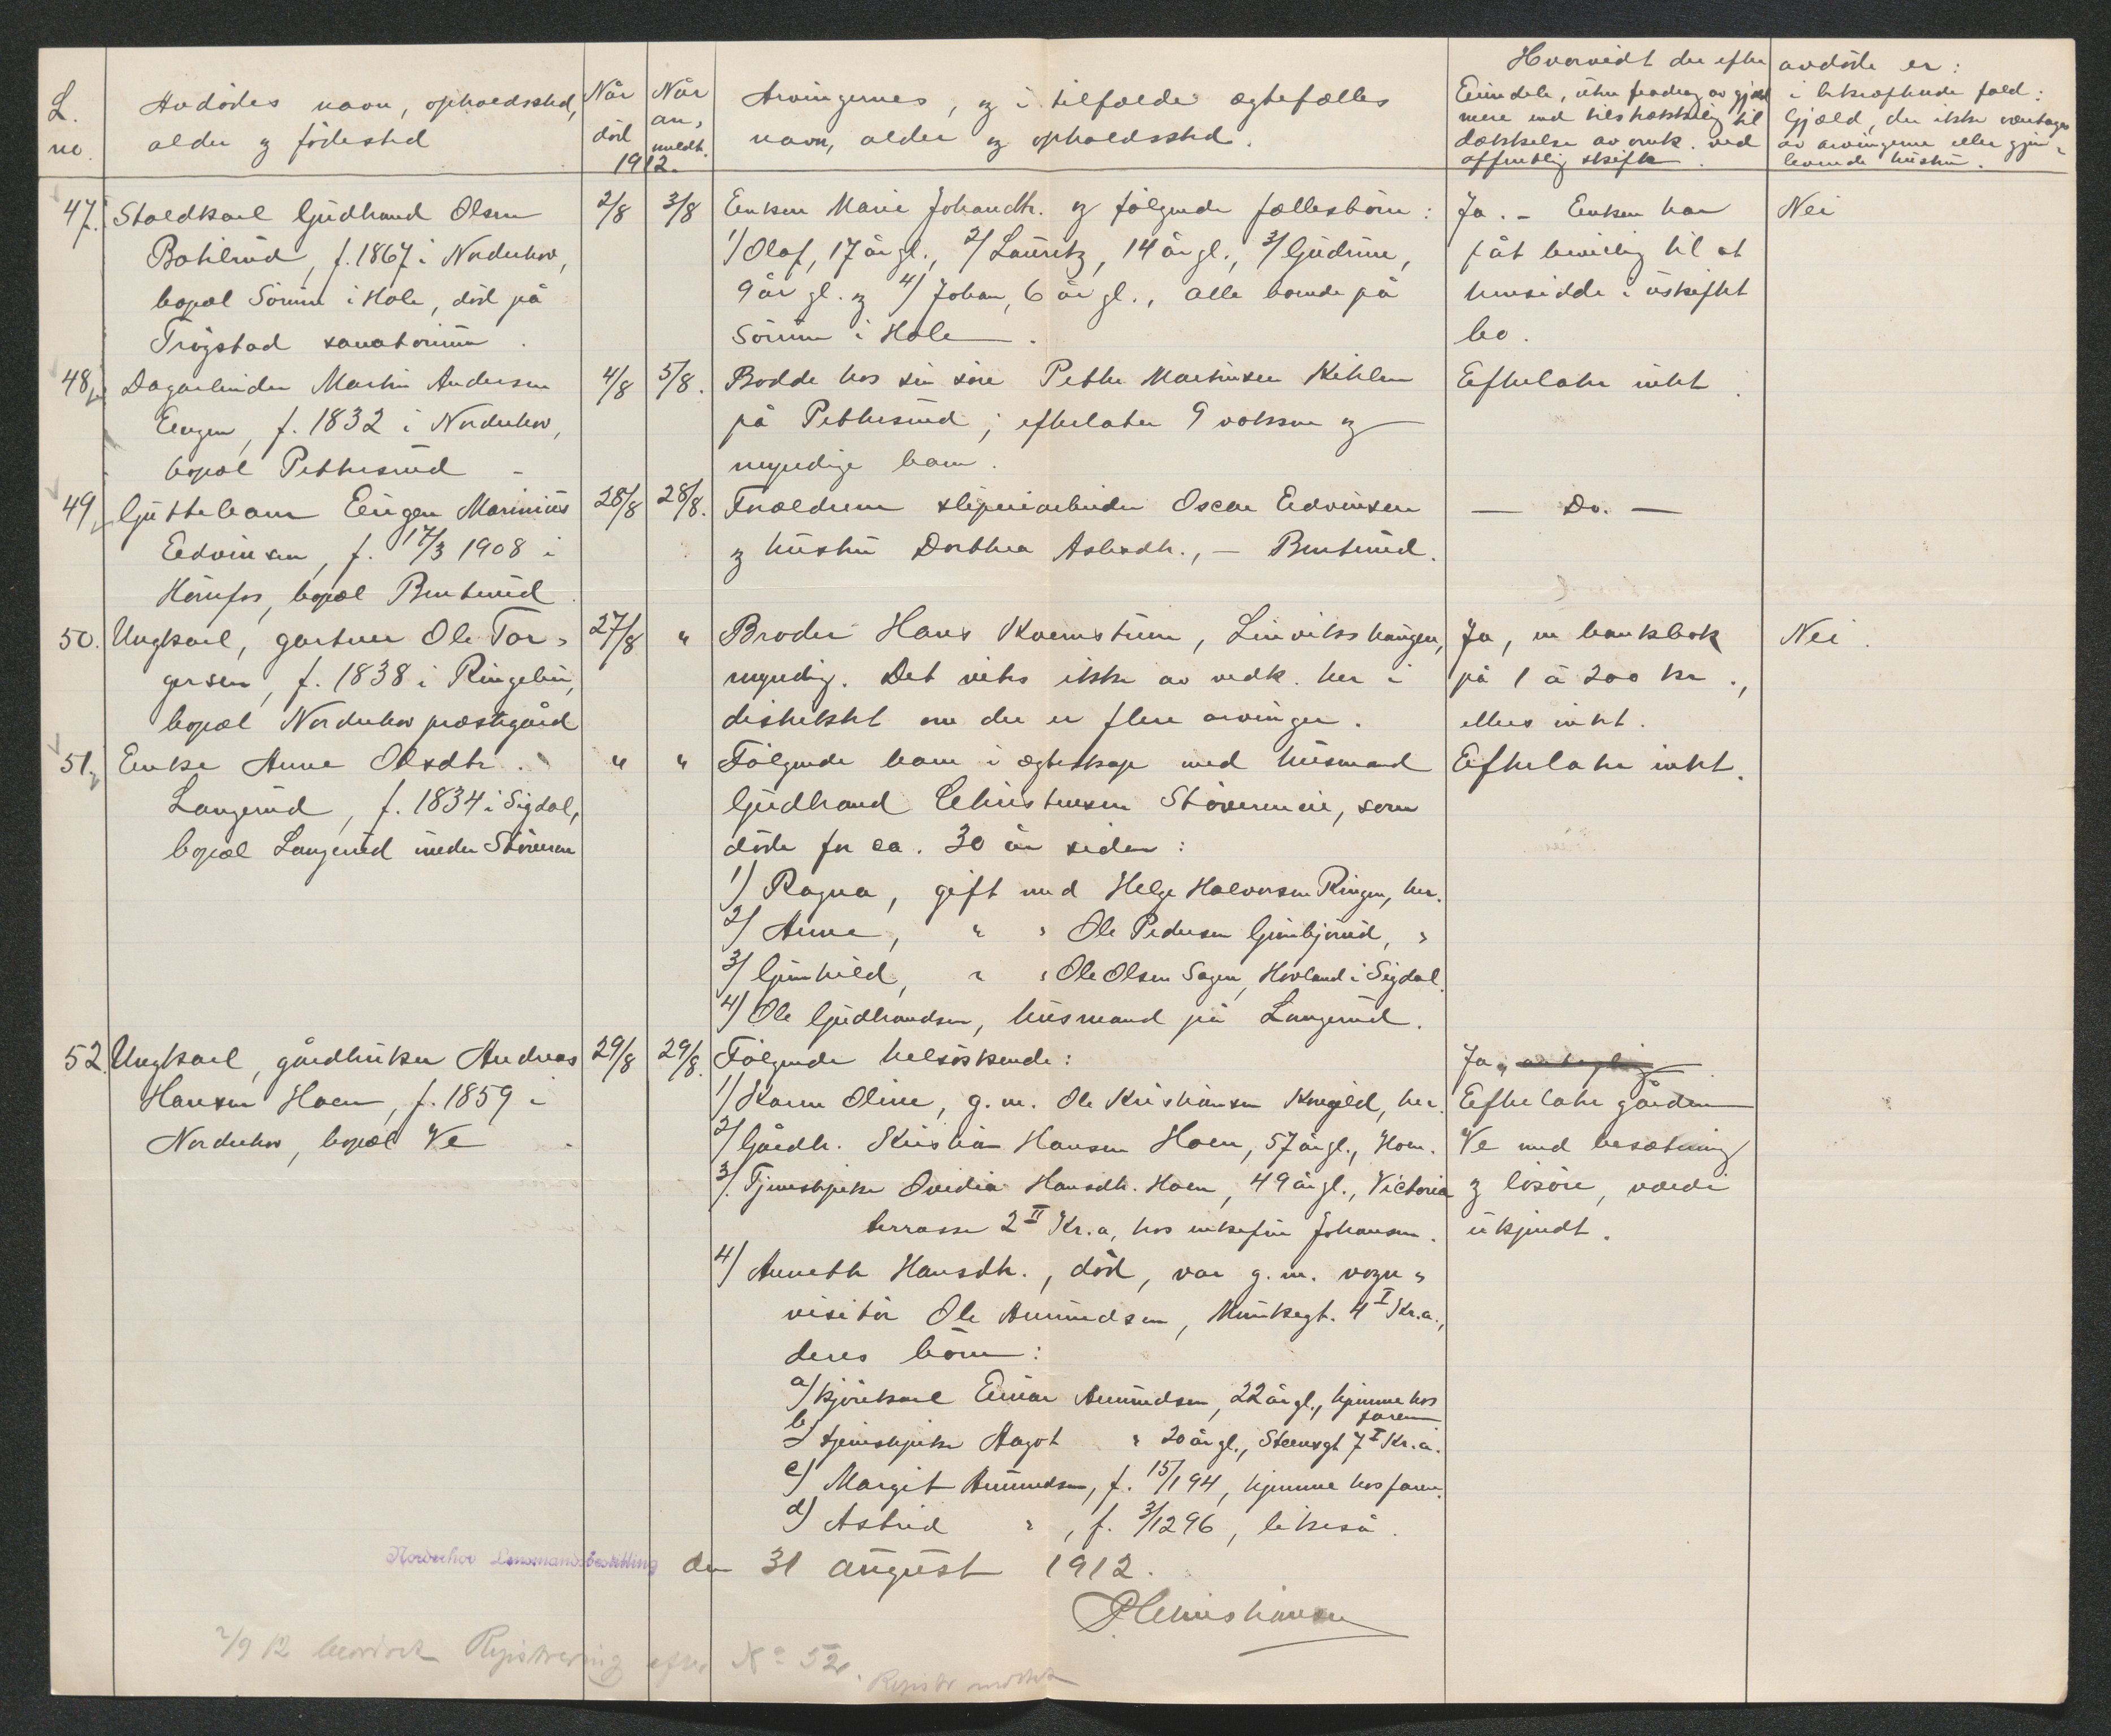 Hvorvidt der efter avdöde er:
L. no.
Avdödes navn, opholdssted, alder og födested
Når död
Når anmeldt.
1912.
Arvingernes, og i tilfælde ægtefælles
navn, alder og opholdssted.
Eiendele, uten fradrag av gjæld
mere end tilstrækkelig til
dækkelse av omk. ved
offentlig skifte
i bekræftende fald:
Gjæld, der ikke overtages
av arvingerne eller gjen-
levende hustru.
47. Staldkarl Gudbrand Olsen
2/8 3/8
Enken Marie Johandtr. og fölgende fællesbörn:
Ja. - Enken har
Nei
Bahlrud, f. 1867 i Norderhov,
1/ Olaf, 17 år gl., 2/ Lauritz, 14 år gl., 3/ Gudrun,
fåt bevilling til at
bopæl Sörum i Hole, död på
9 år gl. og 4/ Johan, 6 år gl., alle boende på
hensidde i uskiftet
Trögstad sanatorium.
Sörum i Hole.
bo.
48, Dagarbeider Martin Andersen
4/8 5/8.
Bodde hos sin sön Petter Martinsen Kihlen
Efterlater intet.
Engen, f. 1832 i Norderhov,
på Pettersrud; efterlater 9 voksne og
bopæl Pettersrud -
myndige barn.
49, Guttebarn Eugen Marinius
28/8 28/8.
Forældrene sliperiarbeider Oscar Edvinsen
- Do. -
Edvinsen, f. 17/3 1908 i
og hustru Dorthea Aslesdtr., - Bentsrud.
Hönefos, bopæl Bentsrud.
50. Ungkarl, gartner Ole Tor-
27/8 "
Broder Hans Kvernstuen, Linvikshaugen,
Ja, en bankbok
Nei.
gersen, f. 1838 i Ringebu,
myndig. Det vites ikke av vedk. her i
på 1 à 200 kr.,
bopæl Norderhov præstegård
distriktet om der er flere arvinger.
ellers intet.
51, Enke Anne Olsdtr.
" "
Fölgende barn i ægteskap med husmand
Efterlater intet.
Langerud, f. 1834 i Sigdal,
Gudbrand Christensen Stöveneie, som
bopæl Langerud under Stöveren
döde for ca. 30 år siden:
1) Ragna, gift med Helge Halvorsen Ringen, her.
2/ Anne, " " Ole Pedersen Gunbjörrud, "
3/ Gunhild, " " Ole Olsen Sagen, Hovland i Sigdal.
4) Ole Gudbrandsen, husmand på Langerud.
52. Ungkarl, gårdbruker Andreas
29/8 29/8.
Fölgende helsöskende:
Ja,
Hansen Hoen, f. 1859 i
1/ Karen Oline, g.m. Ole Kristiansen, her.
Efterlater gården
Norderhov, bopæl Ve
2/ Gårdbr. Kristian Hansen Hoen, 57 år gl., Hoen.
Ve med besætning
3/. Tjenestepike Ovidia Hansdtr. Hoen, 49 år gl., Victoria
og lösöre, værdi
terrasse 2 II Kr.a, hos enkefru Johansen.
ukjendt.
4/ Anneth Hansdtr., död, var g.m. vogn-
visitör Ole Amundsen, Munkegt. 4 I Kr.a.,
deres börn:
a) kjörekarl Einar Amundsen, 22 år gl., hjemme hos
faren
b) tjenestepike Aagot " 20 år gl., Steensgt 7 I Kr.a.
c) Margit Amundsen, f. 15/1 94, hjemme hos faren.
d) Astrid " , f. 3/12 96, likeså.
Norderhov Lensmandsbestilling den 31 august 1912.
P. Christiansen
2/9 12 beordret Registrering efter No 52. Registr mottat